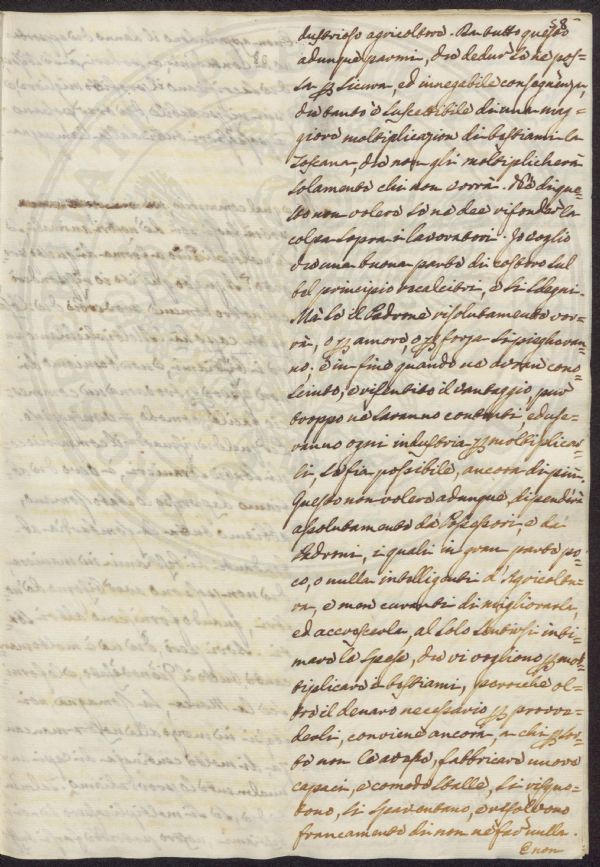 58
dustrioso agricoltore. Da tutto questo
adunque parmi, che dedur se ne pos-
sa p sicura, ed innegabile conseguenza,
che tanto è suscettibile di una mag-
giore moltiplicazion di bestiami la
Toscana, che non gli moltiplicherà
solamente chi non vorrà. Nè di que-
sto non volere se ne dee rifonder la
colpa sopra i lavoratori. Io voglio
che una buona parte di costoro sul
bel principio recalcitri, e si sdegni.
Mà se il Padrone risolutamente vor-
rà, o p amore, o p forza si piegheran-
no; e in fine quando ne avran cono-
sciuto, e risentito il vantaggio, pur
troppo ne saranno contenti, ed use-
ranno ogni industria p moltiplicar-
li, se fia possibile, ancora di più.
Questo non volere adunque, dipenderà
assolutamente da Possessori, e da
Padroni, i quali in gran parte po-
co, o nulla intelligenti d'Agricoltu-
ra, e men curanti di migliorarla,
ed accrescerla, al solo sentirsi inti-
mare le spese, che vi vogliono p mol-
tiplicare i bestiami, perche ol-
tre il denaro necessario p provve-
derli, conviene ancora, a chi p sor-
te non le avesse, fabbricare nuove
capaci, e comode stalle, si riscuo-
tono, si spaventano, e risolvono
francamente di non ne far nulla.
E non